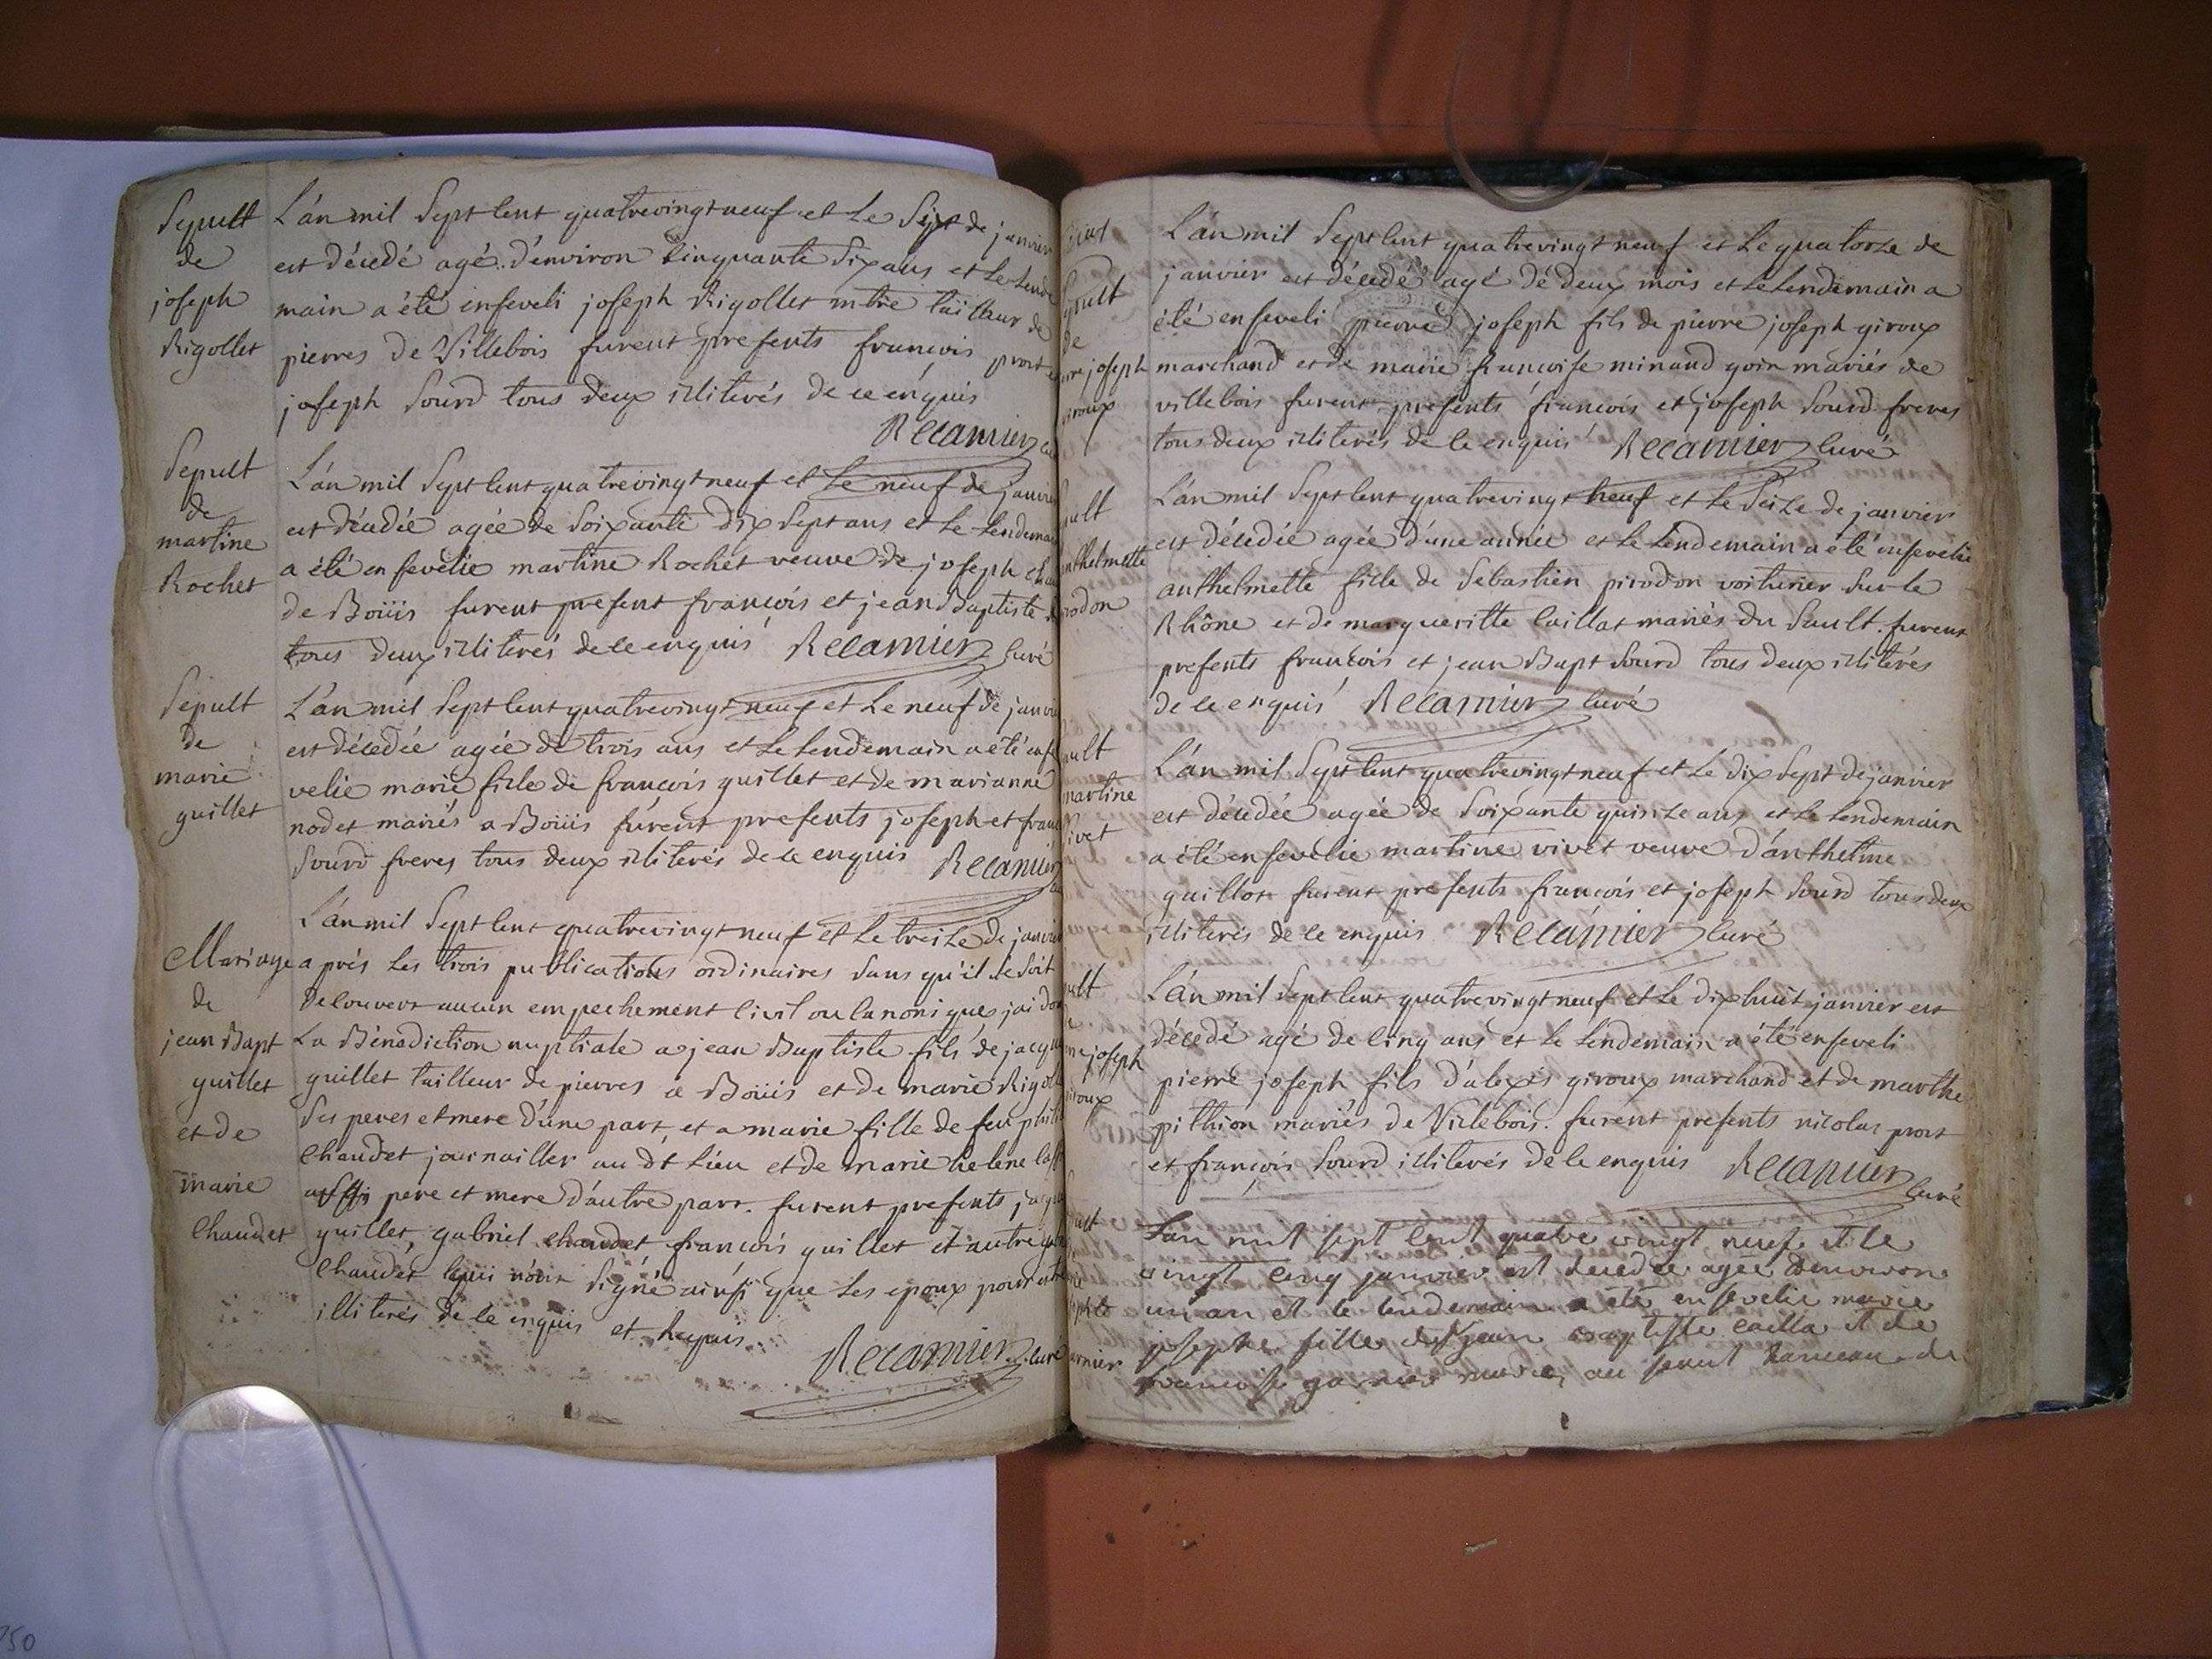 Sepult
de
joseph
Rigollet
L'an mil sept cent quatrevingt neuf et le sept de janvier
est décedé agé d'environ cinquante six ans et le lende
main a été enseveli joseph Rigollet mtre tailleur de
pierres de Villebois furent presents françois prost et
joseph Sourd tous deux illiterés de ce enquis
Recamier
Sepult
de
martine
Rochet
L'an mil sept cent quatrevingt neuf et le neuf de janvier
est décedée agée de soixante dix sept ans et le lendemain
a été ensevelie martine Rochet veuve de joseph
de Boüis furent present françois et jean Baptiste
tous deux illiterés de ce enquis Recamier curé
Sepult
de
marie
guillet
L'an mil sept cent quatrevingt neuf et le neuf de janvi
est décedée agée de trois ans et le lendemain a été ense
velie marie fille de françois guillet et de marianne
nodet mariés a Boüis furent presents joseph et fran
Sourd freres tous deux illiterés de ce enquis Recamier
Mariage
de
jean Bapt
guillet
et de
marie
Chaudet
L'an mil sept cent quatrevingt neuf et le treize de janvier
après les trois publications ordinaires sans qu'il se soit
decouvert aucun empechement civil ou canoniques j'ai don
La Bénediction nuptiale a jean Baptiste fils de jacque
guillet tailleur de pierres a Boüis et de marie Rigoll
ses peres et mere d'une part, et a marie fille de feu phili
Chaudet journailler au dt Lieu et de marie helene
aussi pere et mere d'autre part. furent presents jacque
guillet, gabriel chaudet françois guillet et autre
Chaudet qui n'ont signé ainsi que les epoux pour
illiterés de ce enquis et requis.
Recamier curé
pult
de
joseph
giroux
L'an mil sept cent quatrevingt neuf et le quatorze de
janvier est décedé agé de deux mois et le lendemain a
été enseveli pierre joseph fils de pierre joseph giroux
marchand et de marie françoise minaud goin mariés de
villebois furent presents françois et joseph Sourd freres
tous deux illiterés de ce enquis Recamier curé
pult
anthelmette
rodon
L'an mil sept cent quatrevingt neuf et le seize de janvier
est décedée agée d'une année et le lendemain a été ensevelie
anthelmette fille de Sebastien pirodon voiturier sur le
Rhône et de margueritte caillat mariés du Sault. furent
presents françois et jean Bapt Sourd tous deux illiterés
de ce enquis Recamier curé
pult
martine
vivet
L'an mil sept cent quatrevingt neuf et le dix sept de janvier
est décedée agée de soixante quinze ans et le lendemain
a été ensevelie martine vivet veuve d'anthelme
guillot furent presents françois et joseph Sourd tous deux
illiterés de ce enquis Recamier curé
pult
joseph
giroux
L'an mil sept cent quatrevingt neuf et le dix huit janvier est
décedé agé de cinq ans et le lendemain a été enseveli
pierre joseph fils d'alexis giroux marchand et de marthe
pithion mariés de Villebois. furent presents nicolas prost
et françois Sourd illiterés de ce enquis Recamier curé
arnier
L'an mil sept cent quatre vingt neuf et le
vingt cinq janvier est decedée agée d'environ
un an et le lendemain a été ensevelie marie
josephe fille de jean baptiste cailla et de
françoise garnier mariés au sault hameau de